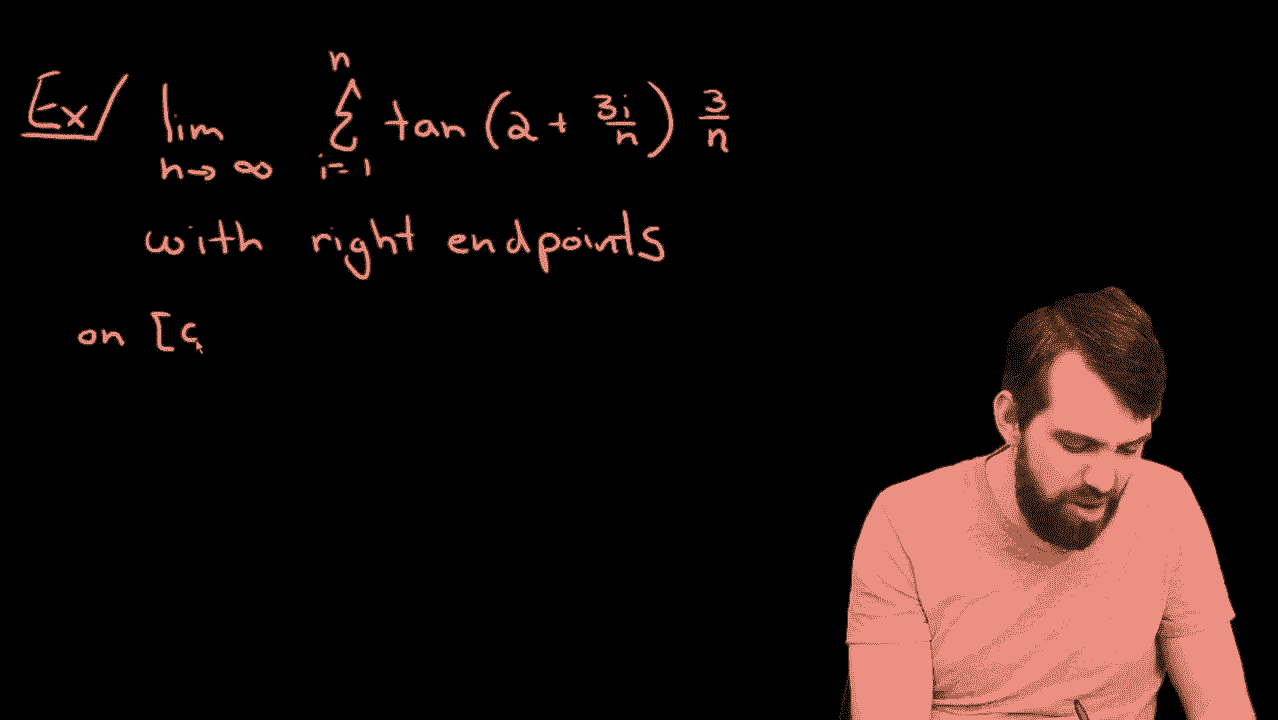 Ex/ lim n→∞ n Σ i=1 tan (2 + 3i/n) 3/n
with right endpoints
on [